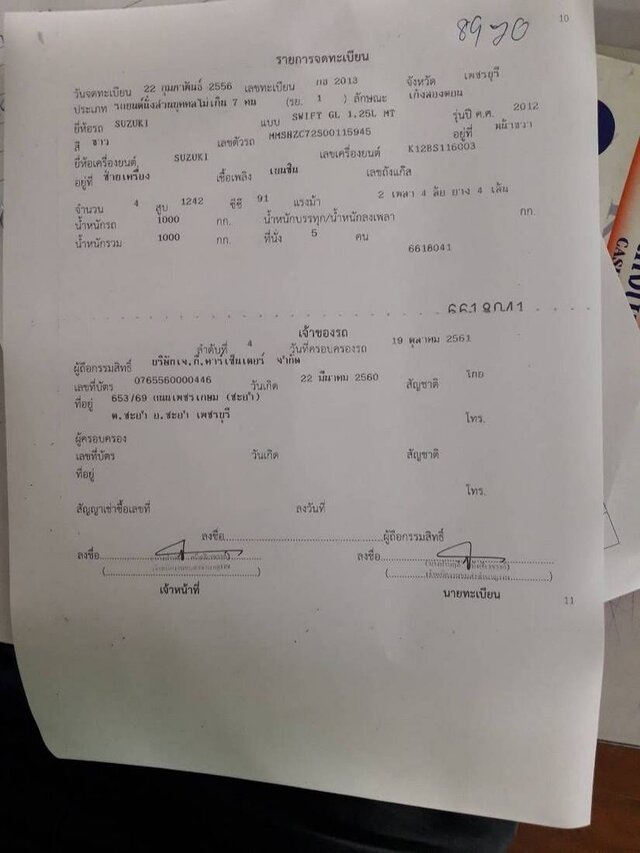 10
8920
รายการจดทะเบียน
วันจดทะเบียน 22 กุมภาพันธ์ 2556 เลขทะเบียน กธ 2013 จังหวัด เพชรบุรี
ประเภท รถยนต์นั่งส่วนบุคคลไม่เกิน 7 คน (รย. 1 ) ลักษณะ เก๋งสองตอน
ยี่ห้อรถ SUZUKI แบบ SWIFT GL 1.25L MT รุ่นปี ค.ศ. 2012
สี ขาว เลขตัวรถ MMSHZC72S00115945 อยู่ที่ หน้าขวา
ยี่ห้อเครื่องยนต์ SUZUKI เลขเครื่องยนต์ K12BS116003
อยู่ที่ ซ้ายเครื่อง เชื้อเพลิง เบนซิน เลขถังแก๊ส
จำนวน 4 สูบ 1242 ซีซี 91 แรงม้า 2 เพลา 4 ล้อ ยาง 4 เส้น
น้ำหนักรถ 1000 กก. น้ำหนักบรรทุก/น้ำหนักลงเพลา กก.
น้ำหนักรวม 1000 กก. ที่นั่ง 5 คน
6618041
6618041
เจ้าของรถ
ลำดับที่ 4 วันที่ครอบครองรถ 19 ตุลาคม 2561
ผู้ถือกรรมสิทธิ์ บริษัทเจ.ที.คาร์เซ็นเตอร์ จำกัด
เลขที่บัตร 0765560000446 วันเกิด 22 มีนาคม 2560 สัญชาติ ไทย
ที่อยู่ 653/69 ถนนเพชรเกษม (ชะอำ)
ต.ชะอำ อ.ชะอำ เพชรบุรี โทร.
ผู้ครอบครอง
เลขที่บัตร วันเกิด สัญชาติ
ที่อยู่
โทร.
สัญญาเช่าซื้อเลขที่ ลงวันที่
ลงชื่อ ผู้ถือกรรมสิทธิ์
ลงชื่อ ลงชื่อ
เจ้าหน้าที่ นายทะเบียน
11